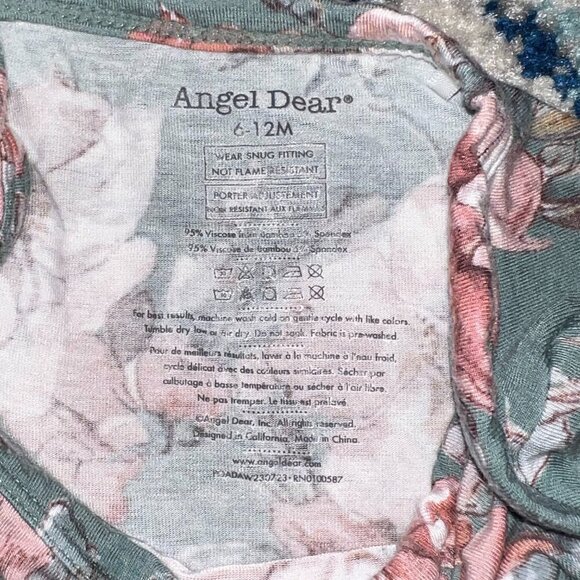 Angel Dear®
6-12M
WEAR SNUG FITTING
NOT FLAME RESISTANT
PORTER AJUSTEMENT
NON RESISTANT AUX FLAMMES
95% Viscose from Bamboo 5% Spandex
95% Viscose de bambou 5% Spandex
For best results, machine wash cold on gentle cycle with like colors.
Tumble dry low or air dry. Do not soak. Fabric is pre-washed
Pour de meilleurs résultats, laver à la machine à l'eau froid,
cycle délicat avec des couleurs similaires. Sécher par
culbutage à basse température ou sécher à l'air libre.
Ne pas tremper. Le tissu est prélavé.
©Angel Dear, Inc. All rights reserved.
Designed in California. Made in China.
www.angeldear.com
RN0100587